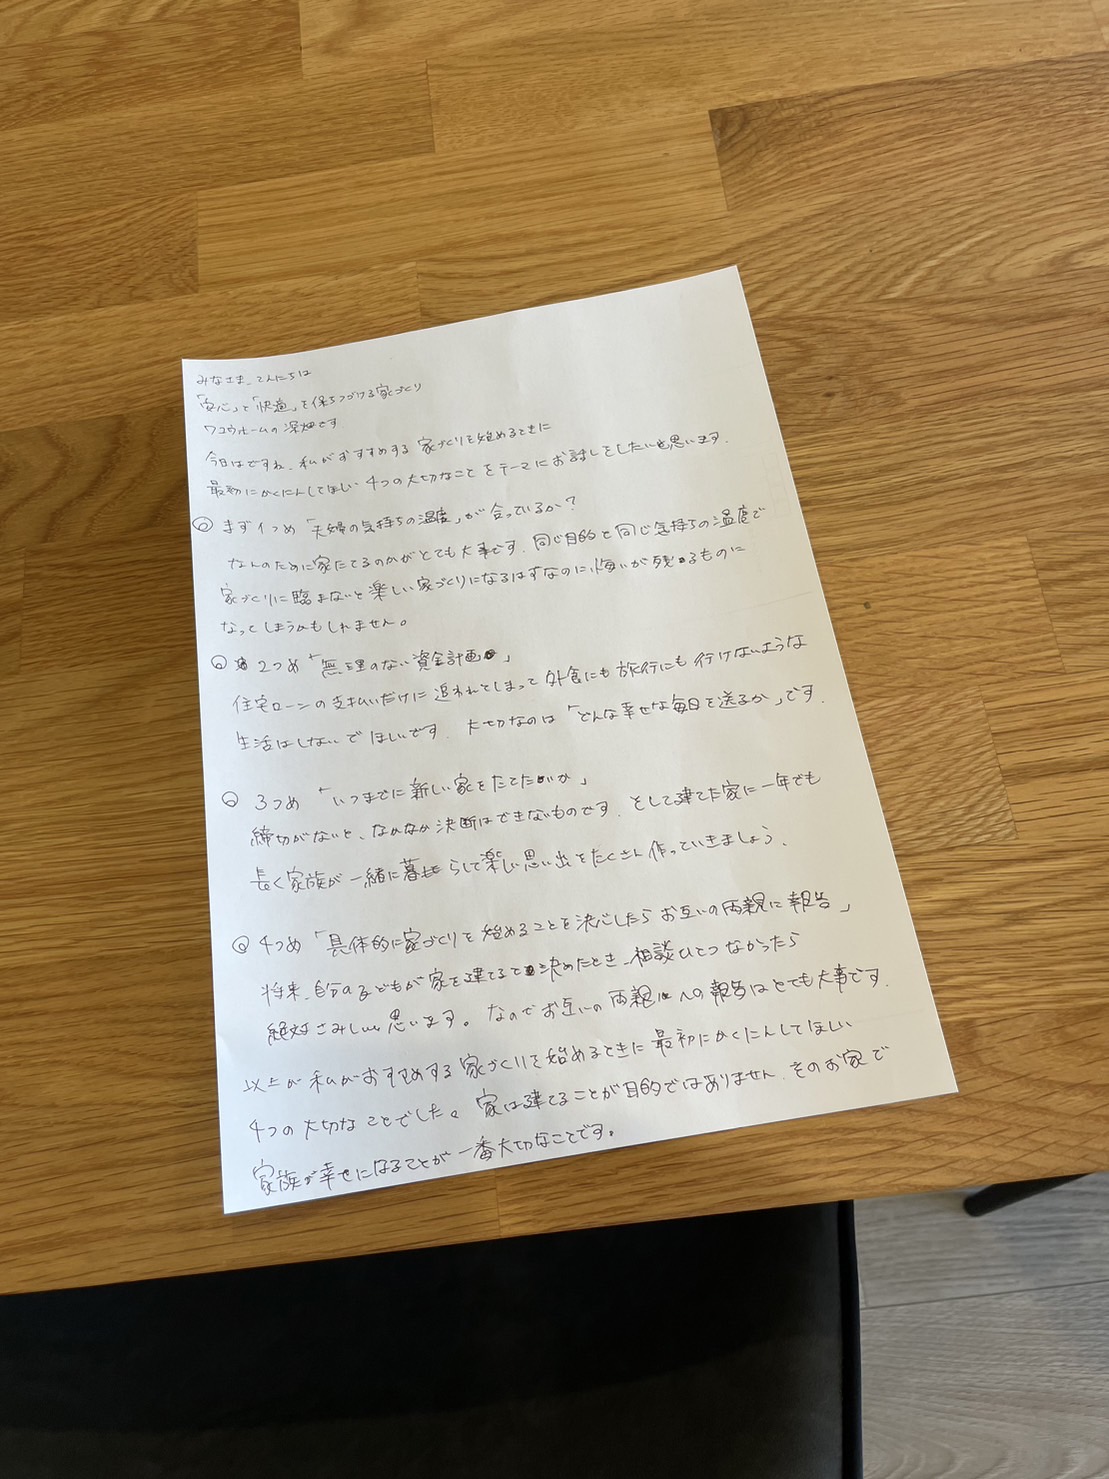 みなさま、こんにちは
「安心」と「快適」を保ちつづける家づくり
ワユウホームの深畑です
今日はですね、私がおすすめする家づくりを始めるときに
最初にかくにんしてほしい4つの大切なことをテーマにお話しをしたいと思います.
○ まず1つめ「夫婦の気持ちの温度」が合っているか?
なんのために家たてるのかがとても大事です. 同じ目的と同じ気持ちの温度で
家づくりに臨まないと楽しい家づくりになるはずなのに悔いが残るものに
なってしまうかもしれません。
○ 2つめ「無理のない資金計画」
住宅ローンの支払いだけに追われてしまって外食にも旅行にも行けないような
生活はしないでほしいです. 大切なのは「どんな幸せな毎日を送るか」です.
○ 3つめ「いつまでに新しい家をたてたいか」
締切がないと、なかなか決断はできないものです. そして建てた家に一年でも
長く家族が一緒に暮らして楽しい思い出をたくさん作っていきましょう.
○ 4つめ「具体的に家づくりを始めることを決心したらお互いの両親に報告」
将来、自分の子どもが家を建てると決めたとき、相談ひとつなかったら
絶対さみしいと思います。なのでお互いの両親への報告はとても大事です.
以上が私がおすすめする家づくりを始めるときに最初にかくにんしてほしい
4つの大切なことでした。家は建てることが目的ではありません. そのお家で
家族が幸せになることが一番大切なことです。